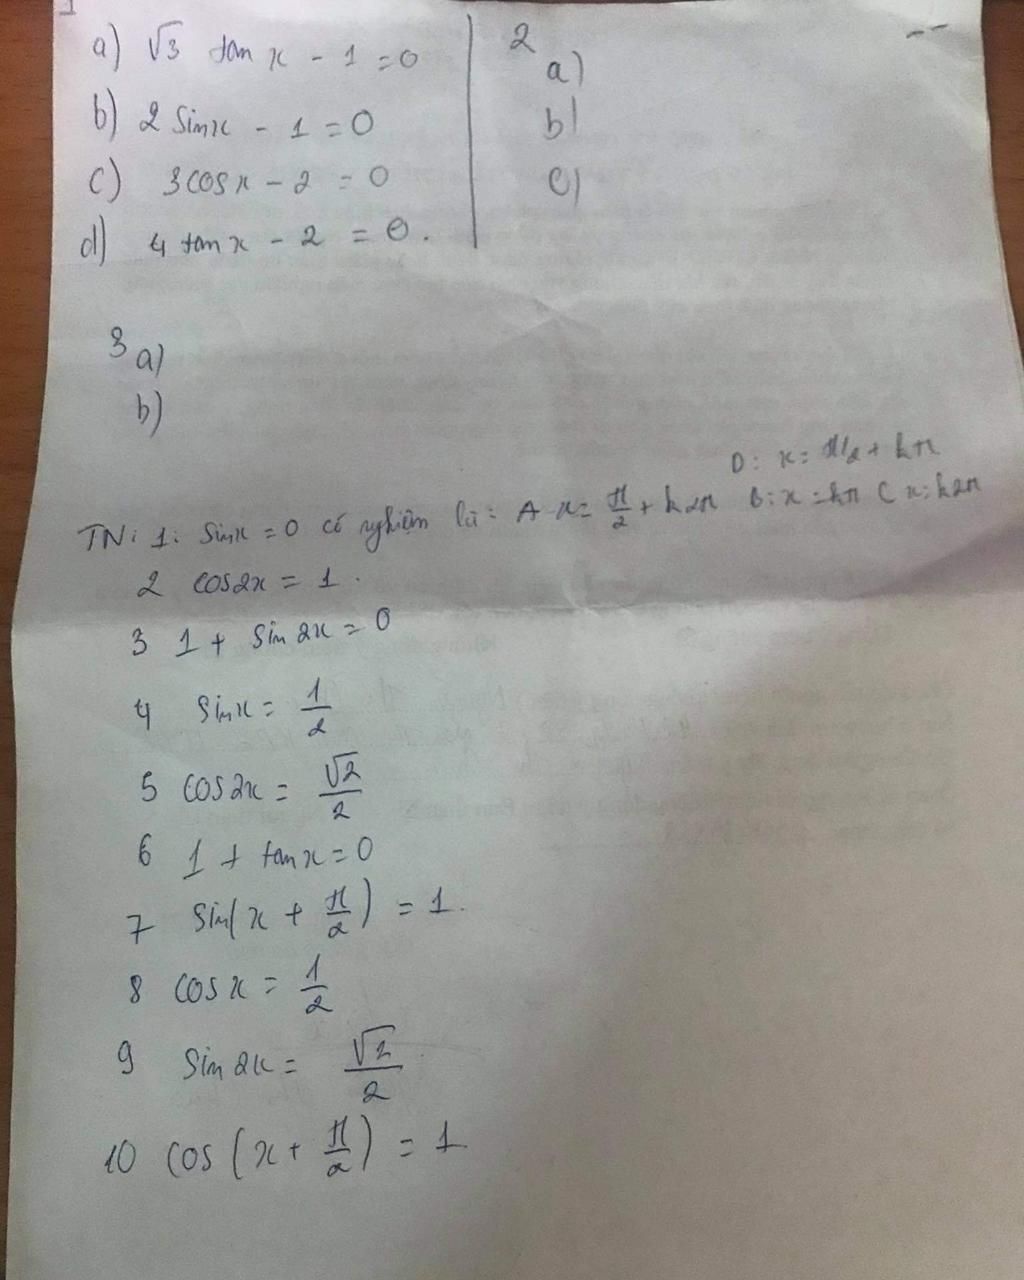 1
a) √3 tan x - 1 = 0
b) 2 sinx - 1 = 0
c) 3cosx - 2 = 0
d) 4 tan x - 2 = 0.
2
a)
b)
c)
3 a)
b)
D: x = π/2 + kπ
TN: 1: Sinx = 0 có nghiệm là: A x = π/2 + k2π B: x = kπ C x = k2π
2 cos2x = 1.
3 1 + Sin 2x = 0
4 Sinx = 1/2
5 cos 2x = √2/2
6 1 + tan x = 0
7 Sin(x + π/2) = 1.
8 cos x = 1/2
9 Sin 2x = √2/2
10 cos (x + π/2) = 1